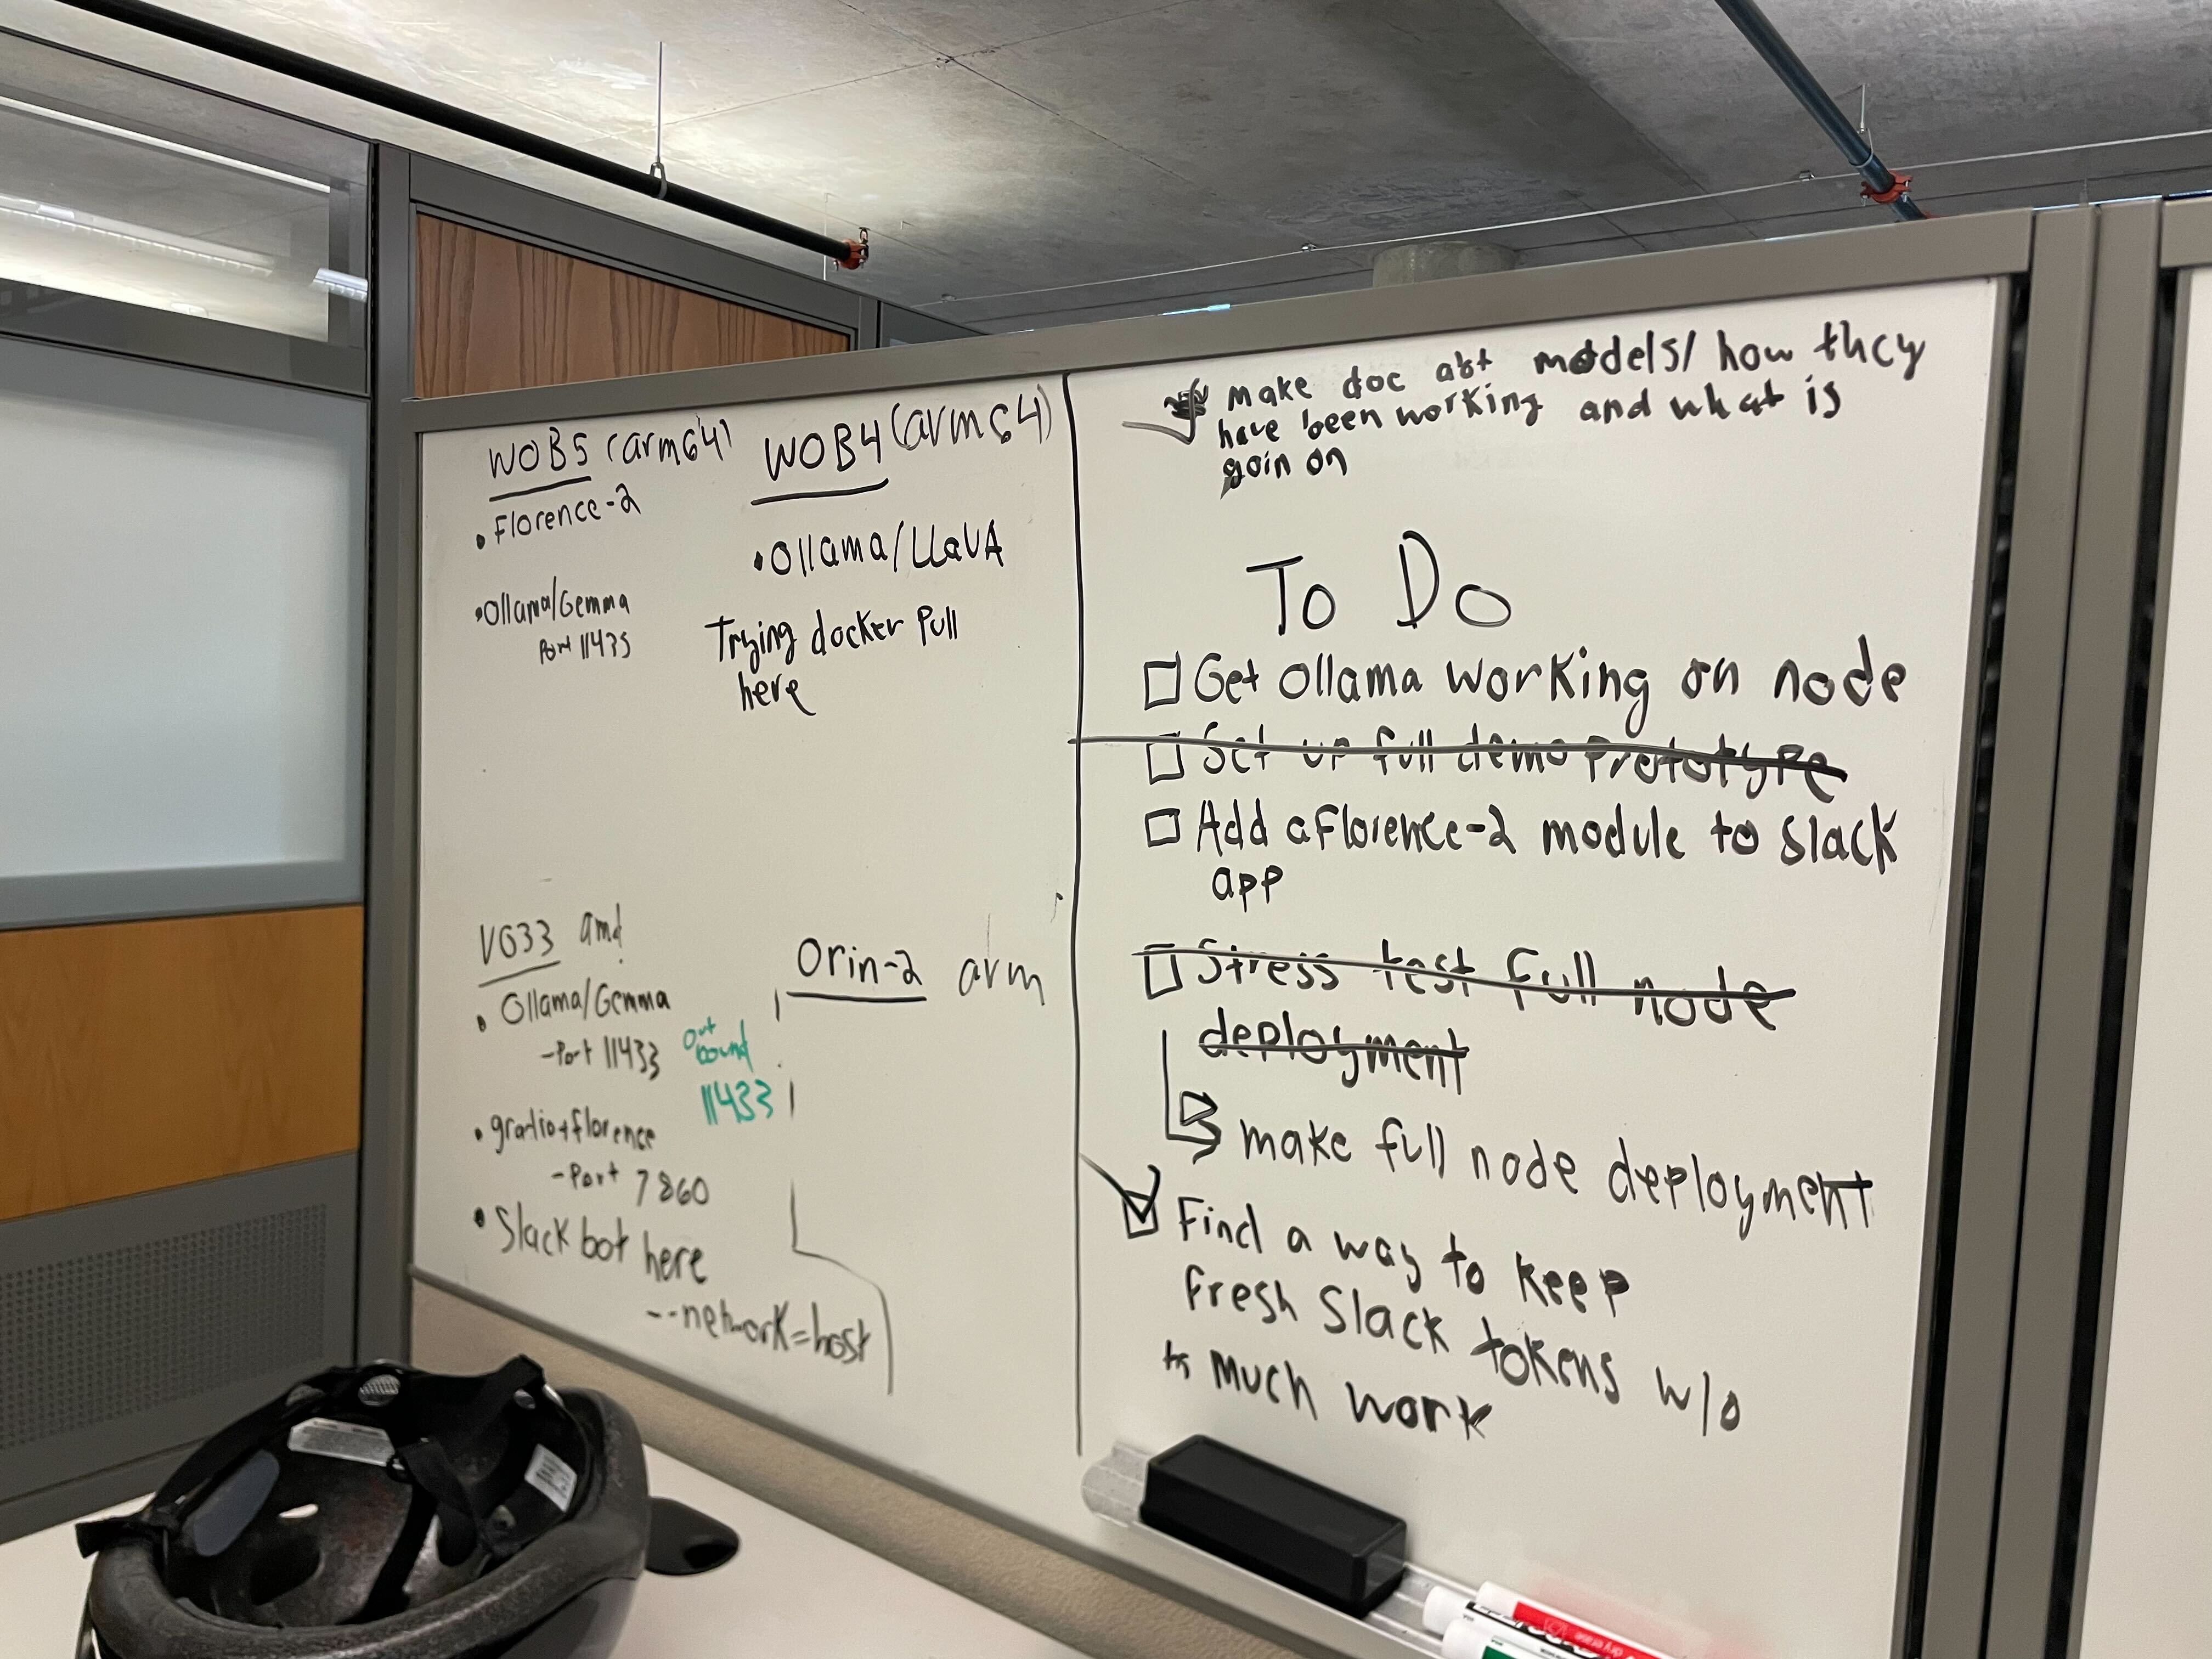 WOB5 (arm64)
• Florence-2
• Ollama/Gemma
Port 11435
WOB4 (arm64)
• Ollama/LLaVA
Trying docker pull
here
V033 amd
• Ollama/Gemma
- Port 11433
out
bound
11433
• gradio+florence
- Port 7860
• Slack bot here
--network=host
Orin-2 arm
make doc abt models/ how they
have been working and what is
goin on
To Do
Get Ollama working on node
Set up full demo prototype
Add a Florence-2 module to Slack
app
Stress test full node
deployment
make full node deployment
Find a way to keep
fresh Slack tokens w/o
to much work